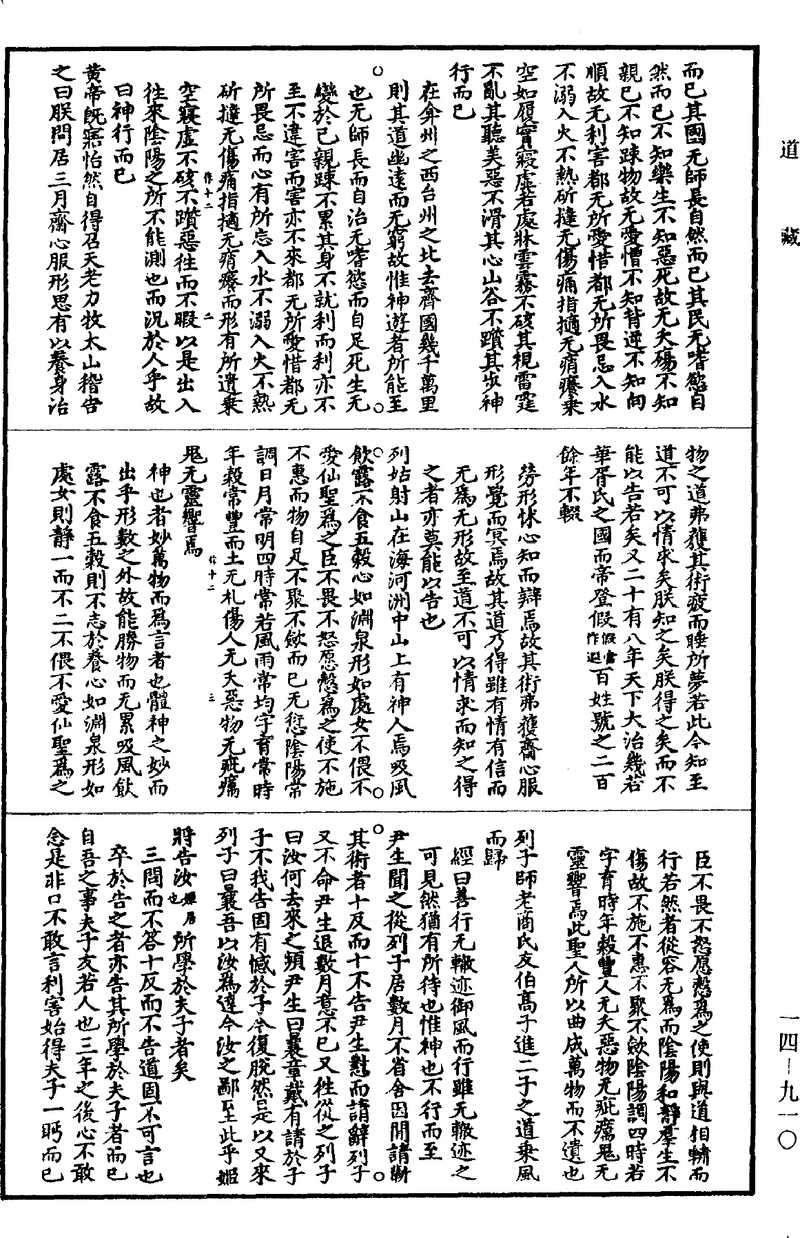 道藏
而已其國无師長自然而已其民无嗜慾自
然而已不知樂生不知惡死故无夭殤不知
親已不知踈物故无愛憎不知背逆不知向
順故无利害都无所愛惜都无所畏忌入水
不溺入火不熱斫撻无傷痛指擿无痟癢乗
空如履實寢虛若處牀雲霧不硋其視雷霆
不亂其聽美惡不滑其心山谷不躓其步神
行而已
在弇州之西台州之北去齊國幾千萬里
則其道幽遠而无窮故惟神遊者所能至
也无師長而自治无嗜慾而自足死生无
變於已親踈不累其身不就利而利亦不
至不違害而害亦不來都无所愛惜都无
所畏忌而心有所忘入水不溺入火不熱
斫撻无傷痛指擿无痟癢而形有所遺乗
空寢虛不硋不躓惡往而不暇以是出入
作十二 二
往來陰陽之所不能測也而況於人乎故
曰神行而已
黄帝旣寤怡然自得召天老力牧太山稽告
之曰朕閒居三月齋心服形思有以養身治
物之道弗獲其術疲而睡所夢若此今知至
道不可以情求矣朕知之矣朕得之矣而不
能以告若矣又二十有八年天下大治幾若
華胥氏之國而帝登假假當作遐百姓號之二百
餘年不輟
勞形怵心知而辯焉故其術弗獲齋心服
形覺而冥焉故其道乃得雖有情有信而
无爲无形故至道不可以情求而知之得
之者亦莫能以告也
列姑射山在海河洲中山上有神人焉吸風
飲露不食五穀心如淵泉形如處女不偎不
愛仙聖爲之臣不畏不怒愿慤爲之使不施
不惠而物自足不聚不歛而已无愆陰陽常
調日月常明四時常若風雨常均字育常時
年穀常豐而土无札傷人无夭惡物无疵癘
作十二 三
鬼无靈響焉
神也者妙萬物而爲言者也體神之妙而
出乎形數之外故能勝物而无累吸風飲
露不食五穀則不志於養心如淵泉形如
處女則靜一而不二不偎不愛仙聖爲之
臣不畏不怒愿慤爲之使則與道相輔而
行若然者從容无爲而陰陽和靜羣生不
傷故不施不惠不聚不歛陰陽調四時若
字育時年穀豐人无夭惡物无疵癘鬼无
靈響焉此聖人所以曲成萬物而不遺也
列子師老商氏友伯高子進二子之道乗風
而歸
經曰善行无轍迹御風而行雖无轍迹之
可見然猶有所待也惟神也不行而至
尹生聞之從列子居數月不省舍因閒請蘄
其術者十反而十不告尹生懟而請辭列子
又不命尹生退數月意不已又往從之列子
曰汝何去來之頻尹生曰曩章戴有請於子
子不我告固有憾於子今復脫然是以又來
列子曰曩吾以汝爲達今汝之鄙至此乎姬
將告汝姬居也所學於夫子者矣
三問而不答十反而不告道固不可言也
卒於告之者亦告其所學於夫子者而已
自吾之事夫子友若人也三年之後心不敢
念是非口不敢言利害始得夫子一眄而已
一四—九一〇